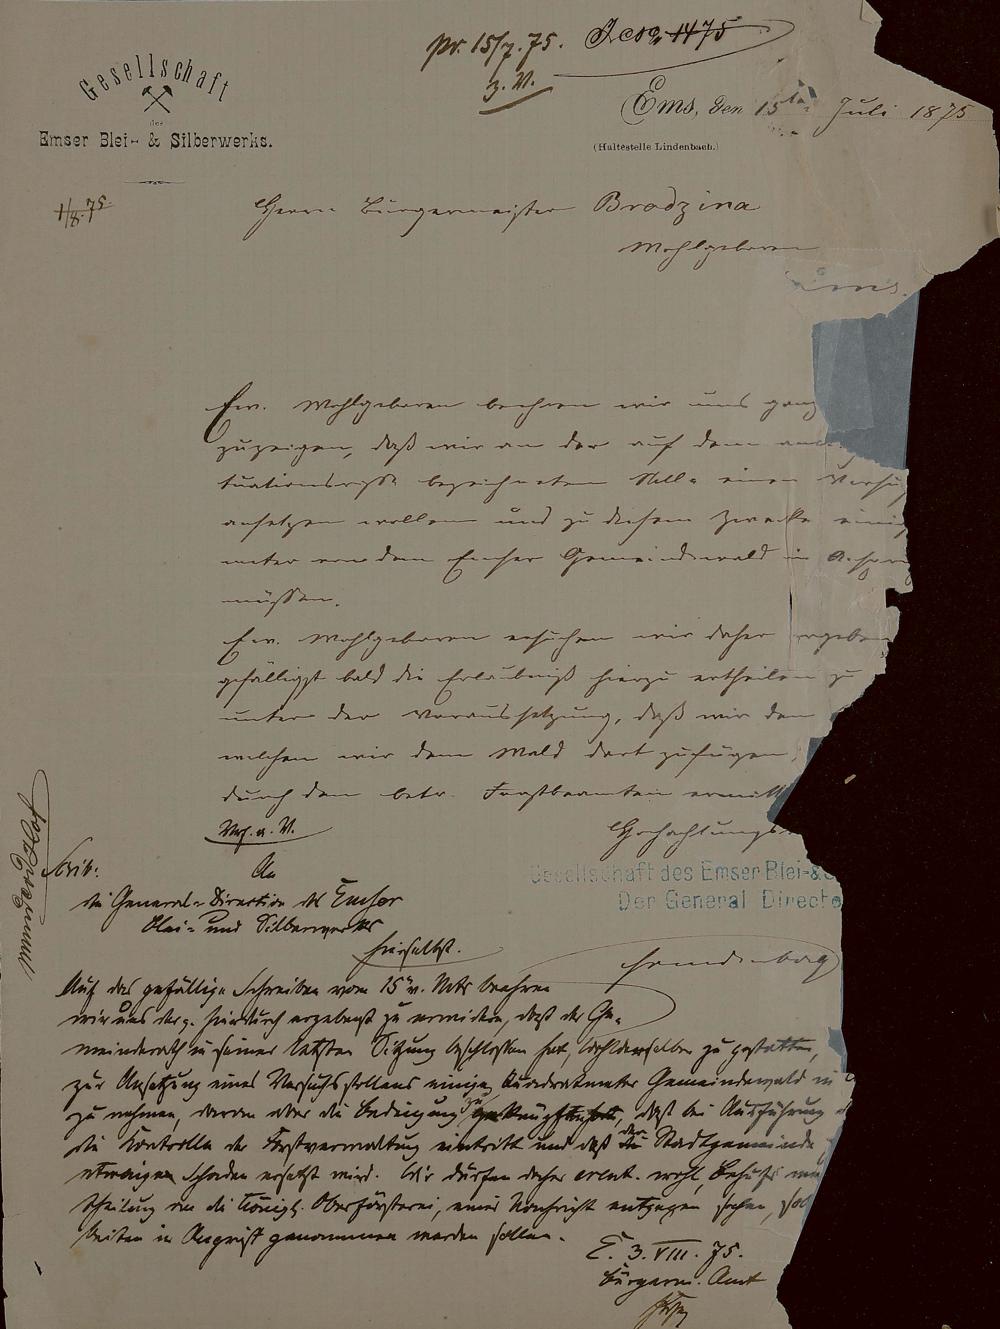 pr. 15/7. 75. Jcoq. 1475
z. V.
Gesellschaft
des
Emser Blei- & Silberwerks.
Ems, den 15ten Juli 1875
(Haltestelle Lindenbach.)
1/8. 75
Herrn Bürgermeister Brodzina
Wohlgeboren
Ems.
Ew. Wohlgeboren beehren wir uns ganz
zuzeigen, daß wir an der auf dem
tuationsrisse bezeichneten Stelle einen Versu
ansetzen wollen und zu diesem Zwecke eini
meter von dem Emser Gemeindewald in Anspr
müssen.
Ew. Wohlgeboren ersuchen wir daher ergeben
gefälligst bald die Erlaubniß hierzu ertheilen zu
unter der Voraussetzung, daß wir den
welchen wir dem Wald dort zufügen,
durch den betr. Forstbeamten ermitt
Hochachtungs
Gesellschaft des Emser Blei- & S
Der General Directo
An
die General-Direction des Emser
Blei- und Silberwerks
hierselbst.
Auf das gefällige Schreiben vom 15. v. Mts beehren
wir uns hierdurch ergebenst zu erwidern, daß der Ge-
meinderath in seiner letzten Sitzung beschlossen hat, wohlderselben zu gestatten,
zur Ansetzung eines Versuchsstollens einige Quadratmeter Gemeindewald in
zu nehmen, daran aber die Bedingung zu knüpfen, daß bei Ausführung
die Kontrolle der Forstverwaltung eintritt und daß der Stadtgemeinde
etwaiger Schaden ersetzt wird. Wir dürfen daher wohl, Behufs
theilung an die Königl. Oberförsterei, einer Nachricht entgegen sehen,
beiten in Angriff genommen werden sollen.
E. 3. VIII. 75.
Bürgerm. Amt